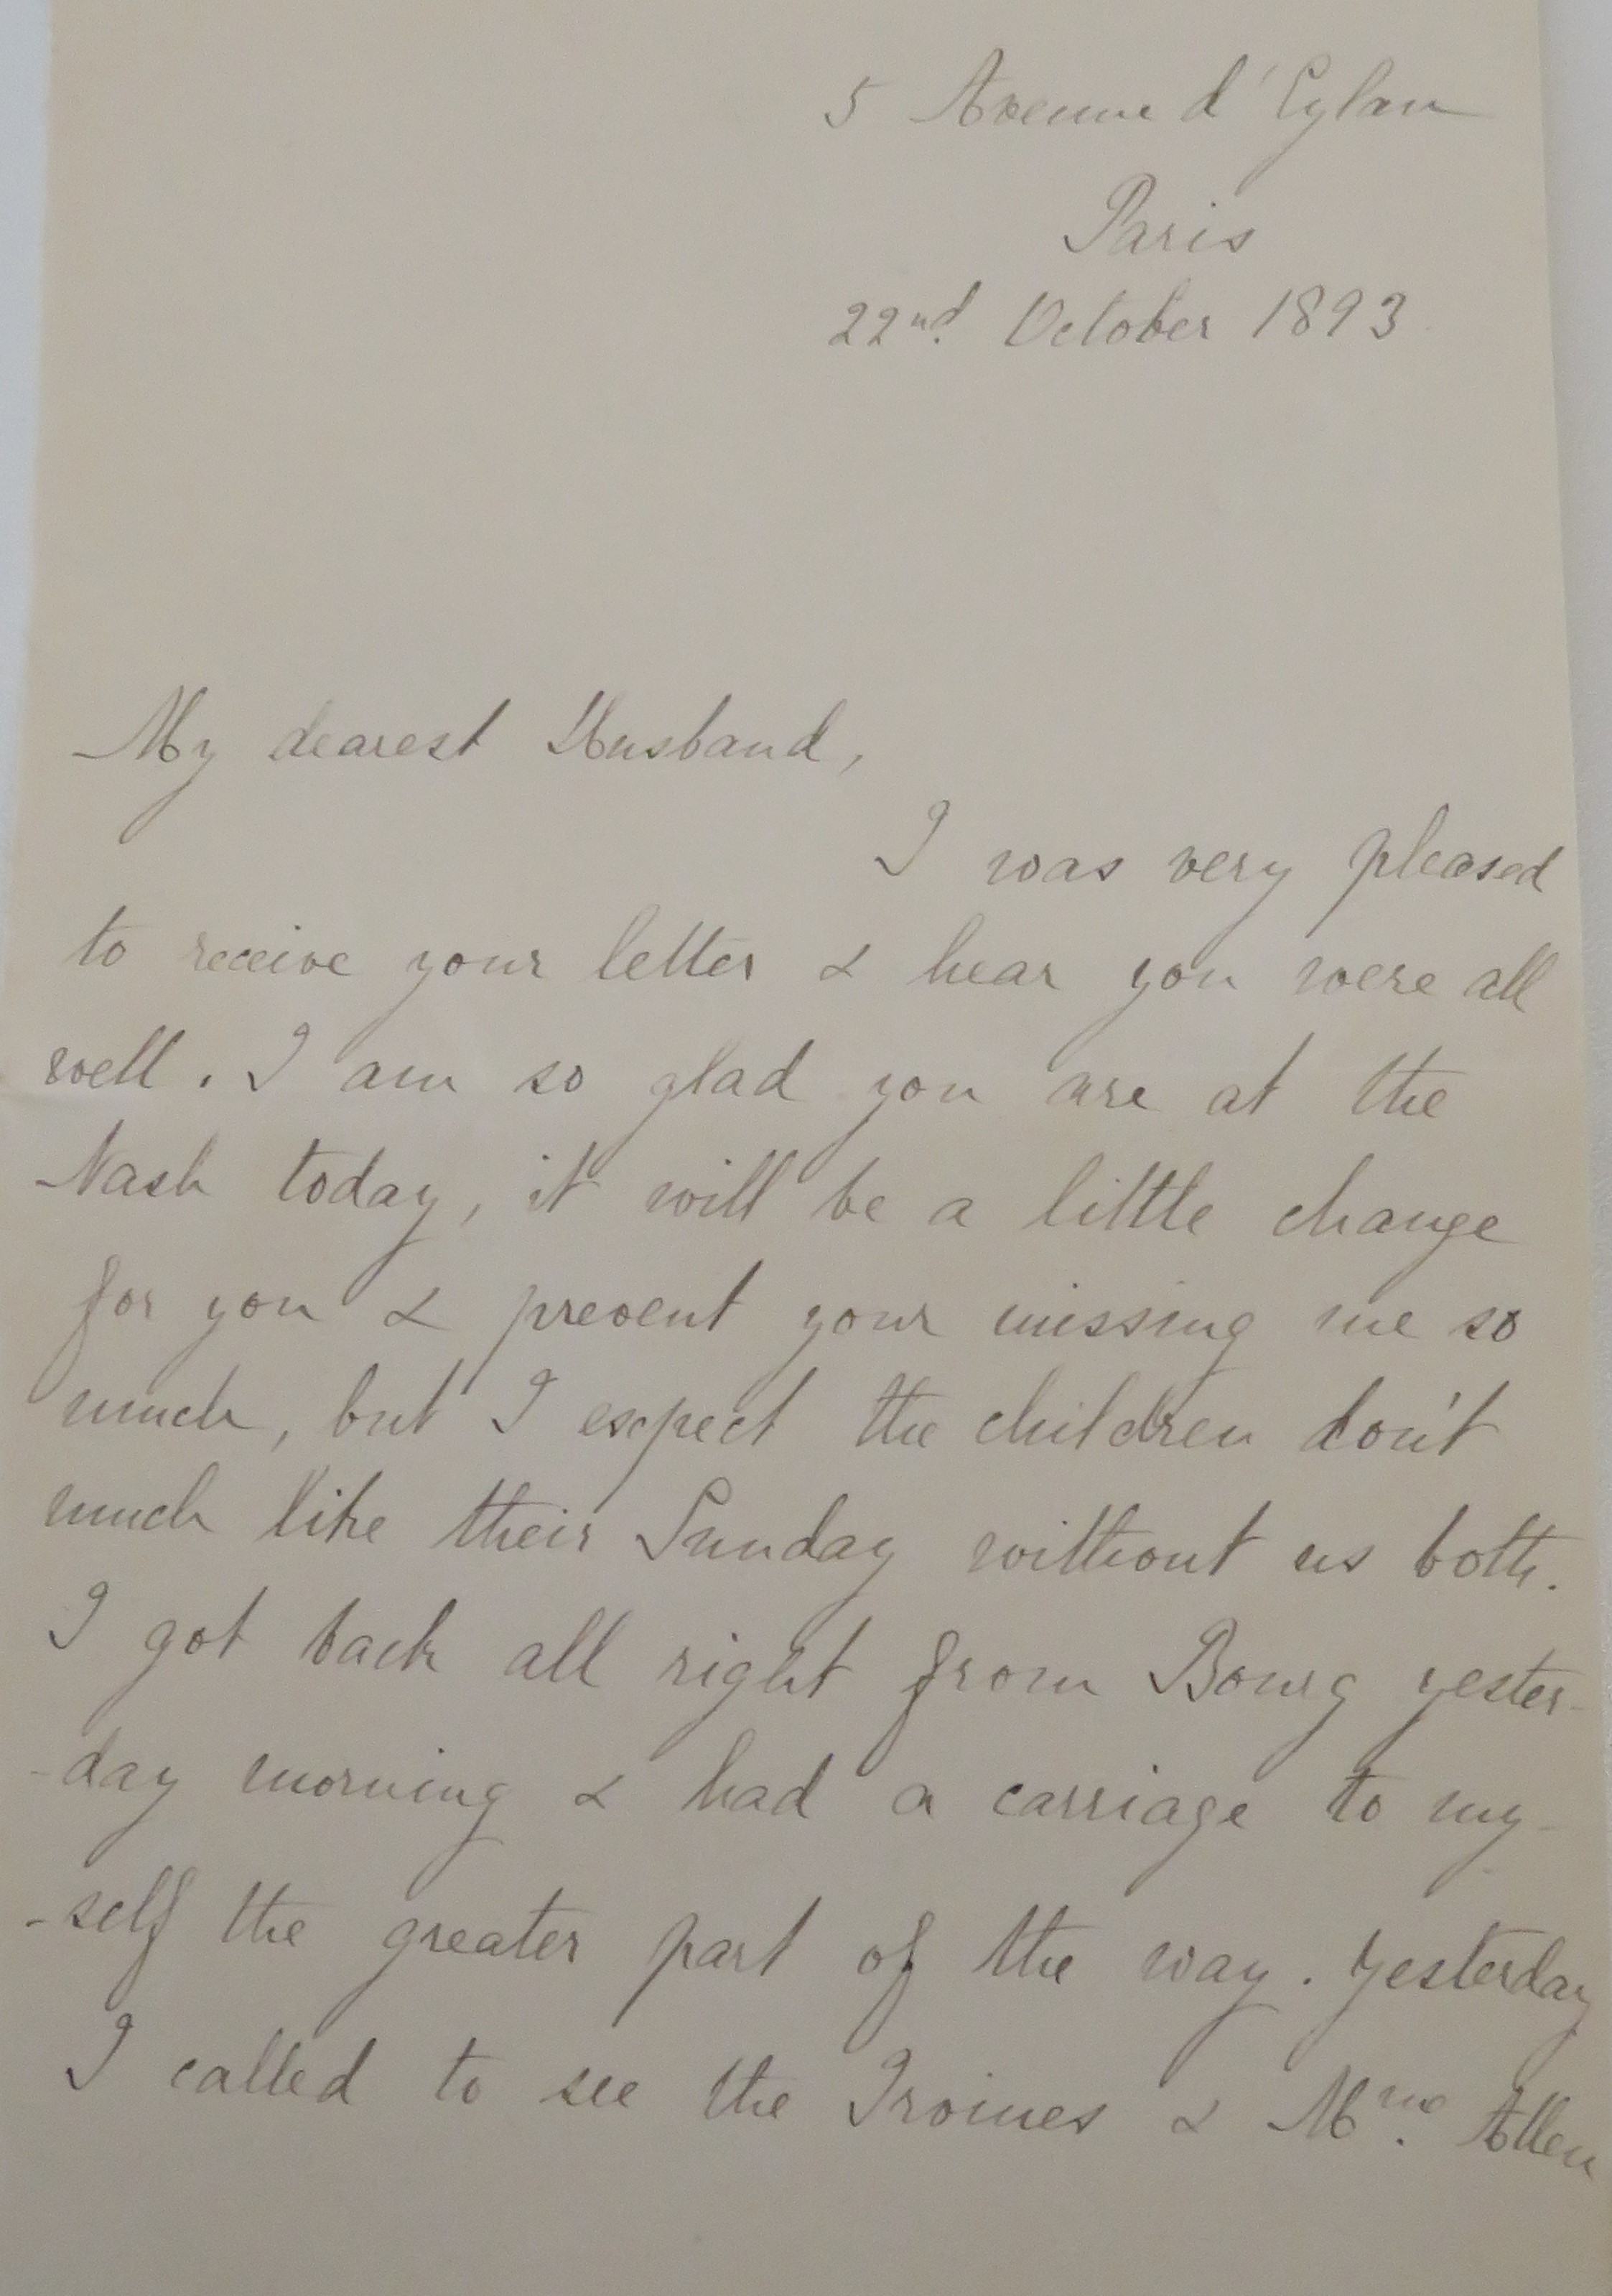 5 Avenue d'Eylau
Paris
22nd. October 1893
My dearest Husband,
I was very pleased
to receive your letter & hear you were all
well. I am so glad you are at the
Nash today, it will be a little change
for you & prevent your missing me so
much, but I expect the children don't
much like their Sunday without us both.
I got back all right from Bourg yester-
-day morning & had a carriage to my-
-self the greater part of the way. Yesterday
I called to see the & Mme. Allen